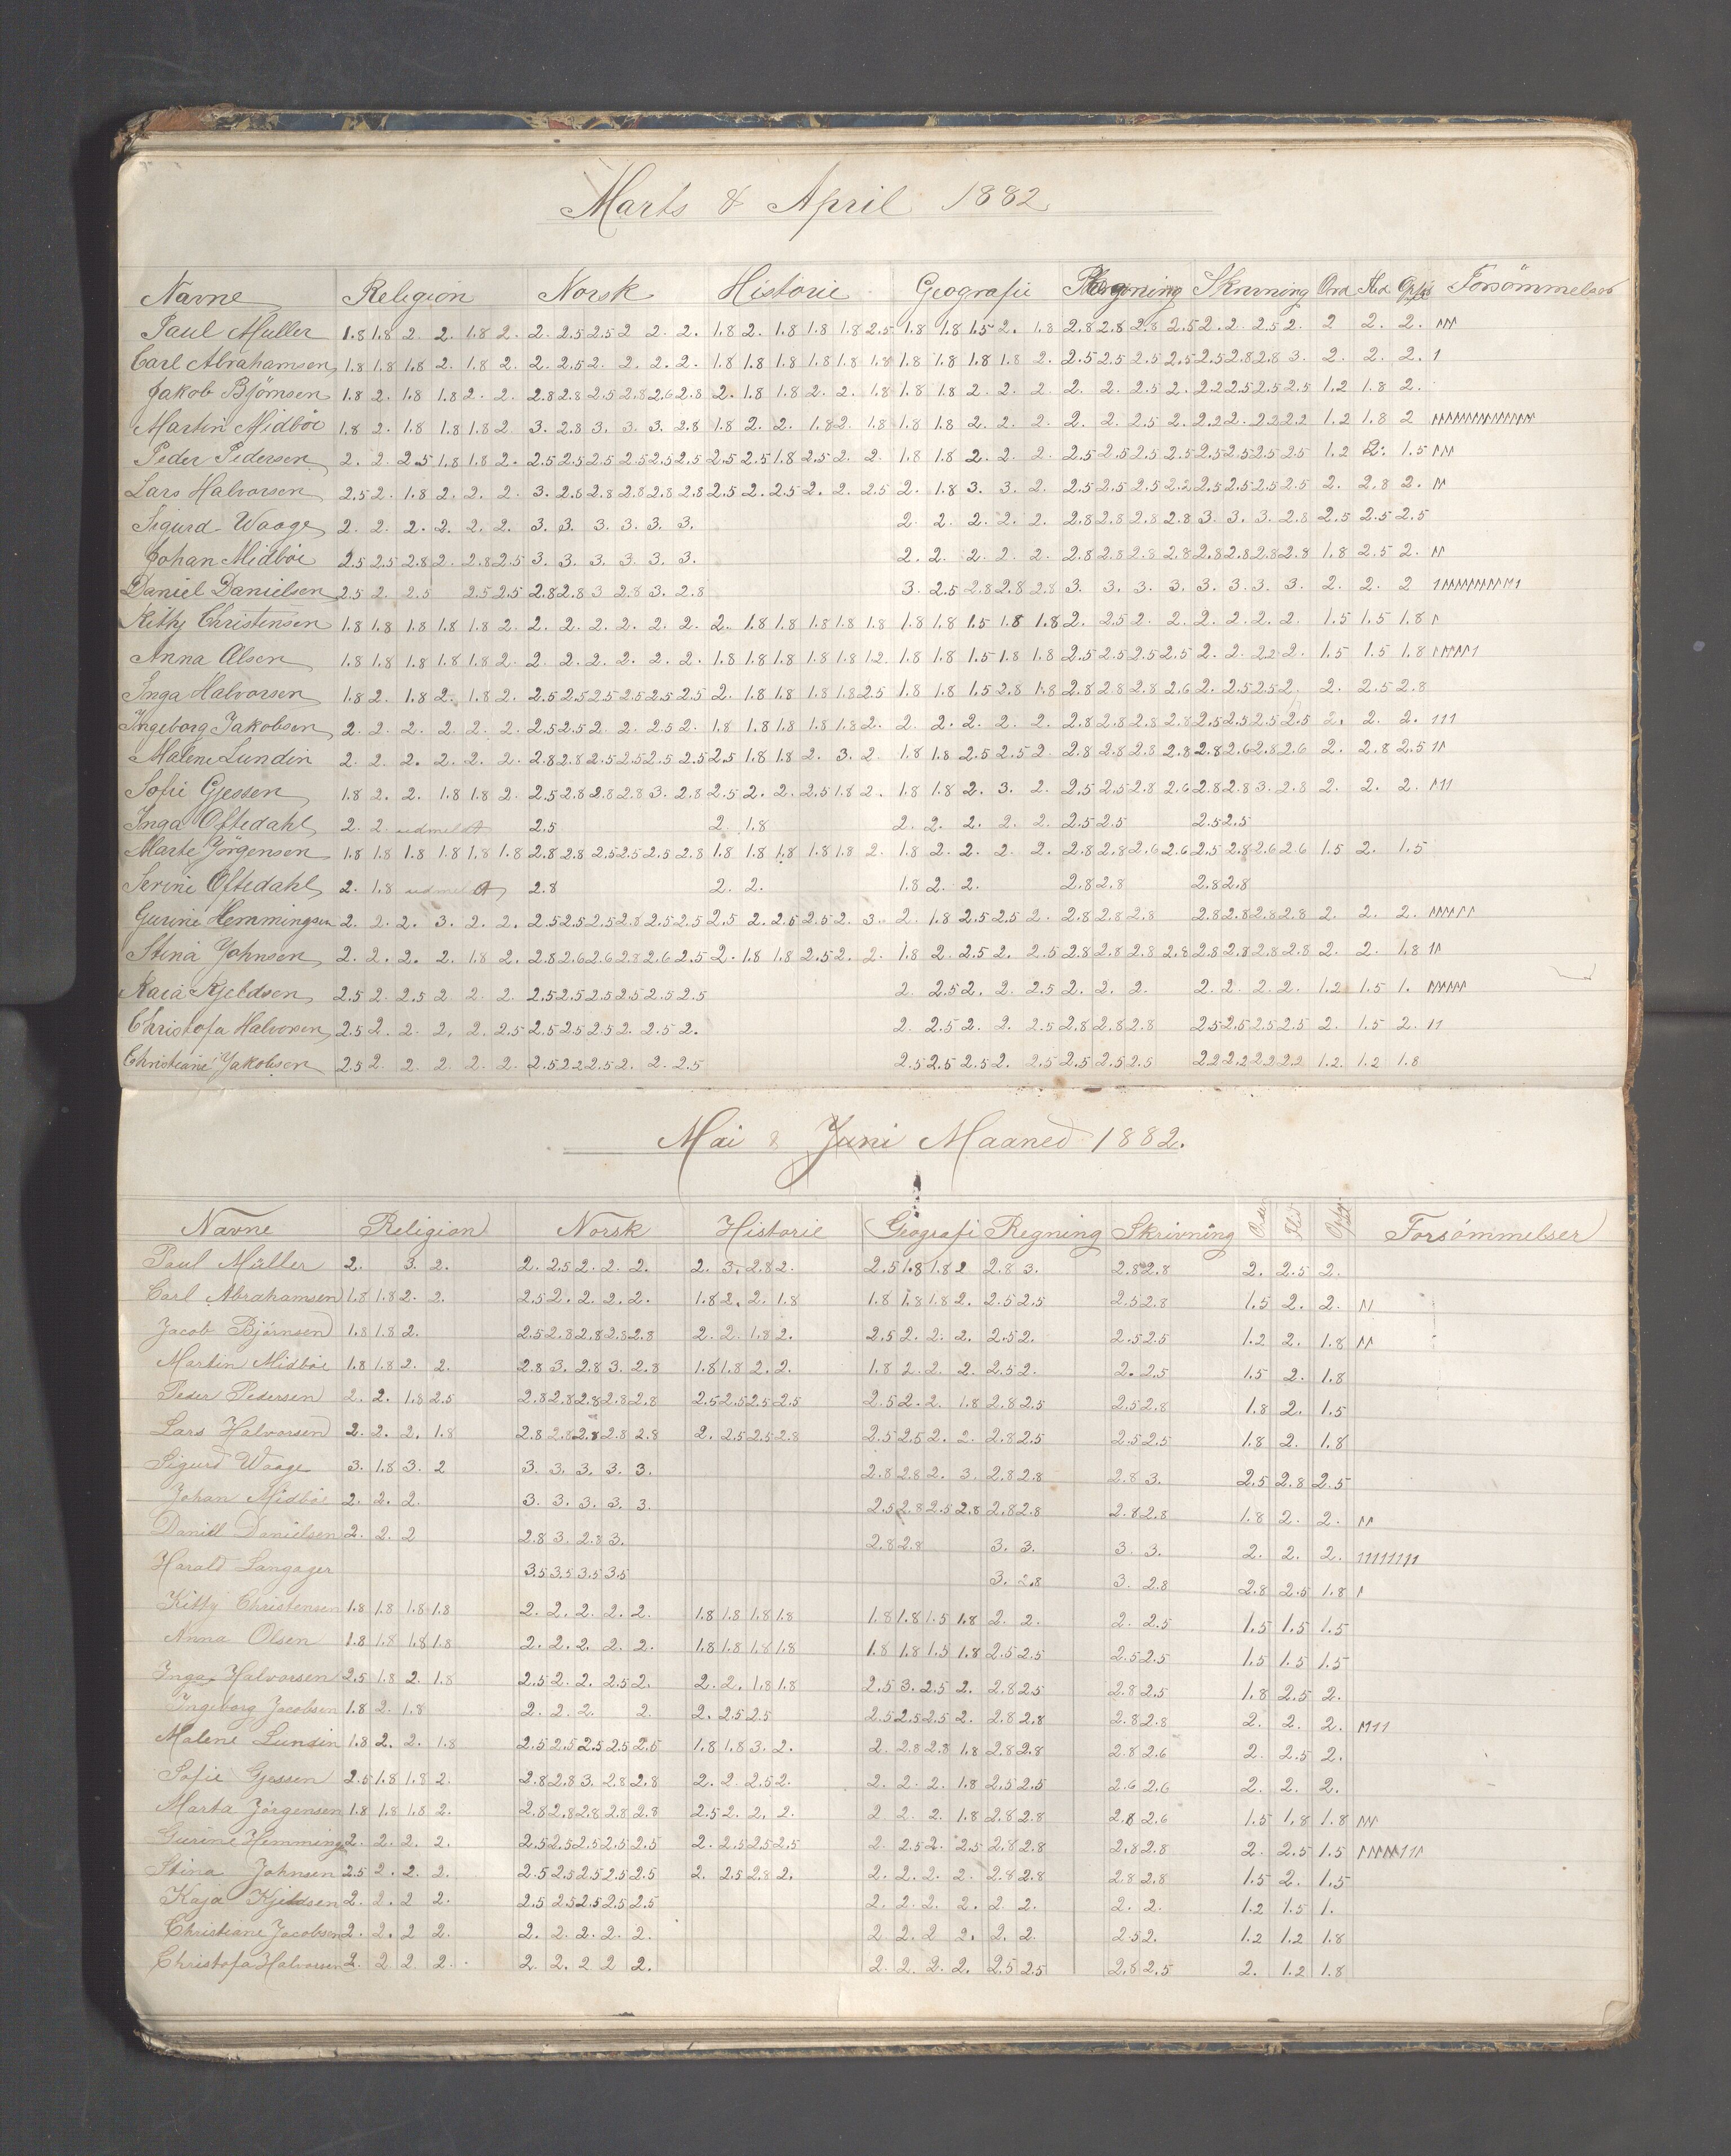 Marts & April 1882
Navne Religion Norsk Historie Geografi Regning Skrivning Ord Flid Opfs Forsömmelser
Paul Müller 1.8 1.8 2. 2. 1.8 2. 2. 2.5 2.5 2 2. 2. 1.8 2. 1.8 1.8 1.8 2.5 1.8 1.8 1.5 2. 1.8 2.8 2.8 2.8 2.5 2. 2. 2.5 2. 2 2. 2.
Carl Abrahamsen 1.8 1.8 1.8 2. 1.8 2. 2. 2.5 2. 2. 2. 2. 1.8 1.8 1.8 1.8 1.8 1.8 1.8 1.8 1.8 1.8 2. 2.5 2.5 2.5 2.5 2.5 2.8 2.8 3. 2. 2. 2.
Jakob Björnsen 1.8 2. 1.8 1.8 2. 2. 2.8 2.8 2.5 2.8 2.6 2.8 2. 1.8 1.8 2. 2. 1.8 1.8 1.8 2. 2. 2. 2. 2. 2.5 2. 2.2 2.5 2.5 2.5 1.2 1.8 2.
Martin Midböe 1.8 2. 1.8 1.8 1.8 2. 3. 2.8 3. 3. 3. 2.8 1.8 2. 2. 1.8 2. 1.8 1.8 1.8 2. 2. 2. 2. 2. 2.5 2. 2.2 2. 2.2 2.2 1.2 1.8 2
Peder Pedersen 2. 2. 2.5 1.8 1.8 2. 2.5 2.5 2.5 2.5 2.5 2.5 2.5 2.5 1.8 2.5 2. 2. 1.8 1.8 2. 2. 2. 2.5 2.5 2.5 2.5 2.5 2.5 2.5 2.5 1.2 2. 1.5
Lars Halvorsen 2.5 2. 1.8 2. 2. 2. 3. 2.8 2.8 2.8 2.8 2.8 2.5 2. 2.5 2. 2. 2.5 2. 1.8 3. 3. 2. 2.5 2.5 2.5 2.2 2.5 2.5 2.5 2.5 2. 2.8 2.
Sigurd Waage 2. 2. 2. 2. 2. 2. 3. 3. 3. 3. 3. 3. 2. 2. 2. 2. 2. 2.8 2.8 2.8 2.8 3. 3. 3. 2.8 2.5 2.5 2.5
Johan Midböe 2.5 2.5 2.8 2. 2.8 2.5 3. 3. 3. 3. 3. 3. 2. 2. 2. 2. 2. 2.8 2.8 2.8 2.8 2.8 2.8 2.8 2.8 1.8 2.5 2.
Daniel Danielsen 2.5 2. 2.5 2.5 2.5 2.8 2.8 3 2.8 3. 2.8 3. 2.5 2.8 2.8 2.8 3. 3. 3. 3. 3. 3. 3. 3. 2. 2. 2
Kitty Christensen 1.8 1.8 1.8 1.8 1.8 2. 2. 2. 2. 2. 2. 2. 2. 1.8 1.8 1.8 1.8 1.8 1.8 1.8 1.5 1.8 1.8 2. 2.5 2. 2. 2. 2. 2. 2. 1.5 1.5 1.8
Anna Olsen 1.8 1.8 1.8 1.8 1.8 2. 2. 2. 2. 2. 2. 2. 1.8 1.8 1.8 1.8 1.8 1.2. 1.8 1.8 1.5 1.8 1.8 2.5 2.5 2.5 2.5 2. 2. 2.2 2. 1.5 1.5 1.8
Inga Halvorsen 1.8 2. 1.8 2. 1.8 2. 2.5 2.5 2.5 2.5 2.5 2.5 2. 1.8 1.8 1.8 1.8 2.5 1.8 1.8 1.5 2.8 1.8 2.8 2.8 2.8 2.6 2. 2.5 2.5 2. 2. 2.5 2.8
Ingeborg Jakobsen 2. 2. 2. 2. 2. 2. 2.5 2.5 2. 2. 2.5 2. 1.8 1.8 1.8 1.8 1.8 2. 2. 2. 2. 2. 2. 2.8 2.8 2.8 2.8 2.5 2.5 2.5 2.5 2. 2. 2.
Malene Lundin 2. 2. 2. 2. 2. 2. 2.8 2.8 2.5 2.5 2.5 2.5 2.5 1.8 1.8 2. 3. 2. 1.8 1.8 2.5 2.5 2. 2.8 2.8 2.8 2.8 2.8 2.6 2.8 2.6 2. 2.8 2.5
Sofie Gjessen 1.8 2. 2. 1.8 1.8 2. 2.5 2.8 2.8 2.8 3. 2.8 2.5 2. 2. 2.5 1.8 2. 1.8 1.8 2. 3. 2. 2.5 2.5 2.8 2.6 2.8 2.8 3. 2.8 2. 2. 2.
Inga Oftedahl 2. 2 udmeldt 2.5 2. 1.8 2. 2. 2. 2. 2. 2.5 2.5 2.5 2.5
Marte Jörgensen 1.8 1.8 1.8 1.8 1.8 1.8 2.8 2.8 2.5 2.5 2.5 2.8 1.8 1.8 1.8 1.8 1.8 2. 1.8 2. 2. 2. 2. 2.8 2.8 2.6 2.6 2.5 2.8 2.6 2.6 1.5 2. 1.5
Serine Oftedahl 2. 1.8 udmeldt 2.8 2. 2. 1.8 2. 2. 2.8 2.8 2.8 2.8
Gurine Hemmingsen 2. 2. 2. 3. 2. 2. 2.5 2.5 2.5 2.8 2.5 2.5 2.5 2. 2.5 2.5 2. 3. 2. 1.8 2.5 2.5 2. 2.8 2.8 2.8 2.8 2.8 2.8 2.8 2. 2. 2.
Stina Johnsen 2. 2. 2. 2. 1.8 2. 2.8 2.6 2.6 2.8 2.6 2.5 2. 1.8 1.8 2.5 2. 2. 1.8 2. 2.5 2. 2.5 2.8 2.8 2.8 2.8 2.8 2.8 2.8 2.8 2. 2. 1.8
Kaia Kjeldsen 2.5 2. 2.5 2. 2. 2. 2.5 2.5 2.5 2.5 2.5 2.5 2. 2.5 2. 2. 2.5 2. 2. 2. 2. 2. 2. 2. 1.2 1.5 1.
Christofa Halvorsen 2.5 2. 2. 2. 2. 2.5 2.5 2.5 2.5 2. 2.5 2. 2. 2.5 2. 2. 2.5 2.8 2.8 2.8 2.5 2.5 2.5 2.5 2. 1.5 2.
Christiane Jakobsen 2.5 2. 2. 2. 2. 2. 2.5 2.2 2.5 2. 2. 2.5 2.5 2.5 2.5 2. 2.5 2.5 2.5 2.5 2.2 2.2 2.2 2.2 1.2. 1.2 1.8
Mai & Juni Maaned 1882.
Navne Religion Norsk Historie Geografi Regning Skrivning Orden Flid Opfs. Forsømmelser
Paul Müller 2. 3. 2. 2. 2.5 2. 2. 2. 2. 3. 2.8 2. 2.5 1.8 1.8 2 2.8 3. 2.8 2.8 2. 2.5 2.
Carl Abrahamsen 1.8 1.8 2. 2. 2.5 2. 2. 2. 2. 1.8 2. 2. 1.8 1.8 1.8 1.8 2. 2.5 2.5 2.5 2.8 1.5 2. 2.
Jacob Bjørnsen 1.8 1.8 2. 2.5 2.8 2.8 2.8 2.8 2. 2. 1.8 2. 2.5 2. 2. 2. 2.5 2. 2.5 2.5 1.2 2. 1.8
Martin Midbøe 1.8 1.8 2. 2. 2.8 3. 2.8 3. 2.8 1.8 1.8 2. 2. 1.8 2. 2. 2. 2.5 2. 2. 2.5 1.5 2. 1.8
Peder Pedersen 2. 2. 1.8 2.5 2.8 2.8 2.8 2.8 2.8 2.5 2.5 2.5 2.5 2.5 2. 2. 1.8 2.8 2.5 2.5 2.8 1.8 2. 1.5
Lars Halvorsen 2. 2. 2. 1.8 2.8 2.8 2.8 2.8 2.8 2. 2.5 2.5 2.8 2.5 2.5 2. 2. 2.8 2.5 2.5 2.5 1.8 2. 1.8
Sigurd Waage 3. 1.8 3. 2 3. 3. 3. 3. 3. 2.8 2.8 2. 3. 2.8 2.8 2.8 3. 2.5 2.8 2.5
Johan Midbøe 2. 2. 2. 3. 3. 3. 3. 3. 2.5 2.8 2.5 2.8 2.8 2.8 2.8 2.8 1.8 2. 2.
Daniel Danielsen 2. 2. 2 2.8 3. 2.8 3. 2.8 2.8 3. 3. 3. 3. 2. 2. 2.
Harald Langager 3.5 3.5 3.5 3.5 3. 2.8 3. 2.8 2.8 2.5 1.8
Kitty Christensen 1.8 1.8 1.8 1.8 2. 2. 2. 2. 2. 1.8 1.8 1.8 1.8 1.8 1.8 1.5 1.8 2. 2. 2. 2.5 1.5 1.5 1.5
Anna Olsen 1.8 1.8 1.8 1.8 2. 2. 2. 2. 2. 1.8 1.8 1.8 1.8 1.8 1.8 1.5 1.8 2.5 2.5 2.5 2.5 1.5 1.5 1.5
Inga Halvorsen 2.5 1.8 2. 1.8 2.5 2. 2. 2.5 2. 2. 2. 1.8 1.8 2.5 3. 2.5 2. 2.8 2.5 2.8 2.5 1.8 2.5 2.
Ingeborg Jacobsen 1.8 2. 1.8 2. 2. 2. 2. 2. 2.5 2.5 2.5 2.5 2.5 2. 2.8 2.8 2.8 2.8 2. 2. 2.
Malene Lunsin 1.8 2. 2. 1.8 2.5 2.5 2.5 2.5 2.5 1.8 1.8 3. 2. 2. 2.8 2.8 1.8 2.8 2.8 2.8 2.6 2. 2.5 2.
Sofie Gjessen 2.5 1.8 1.8 2. 2.8 2.8 3. 2.8 2.8 2. 2. 2.5 2. 2. 2. 2. 1.8 2.5 2.5 2.6 2.6 2. 2. 2.
Marta Jörgensen 1.8 1.8 1.8 2. 2.8 2.8 2.8 2.8 2.8 2.5 2. 2. 2. 2. 2. 2. 1.8 2.8 2.8 2.8 2.6 1.5 1.8 1.8
Gurine Hemmings 2. 2. 2. 2. 2.5 2.5 2.5 2.5 2.5 2. 2.5 2.5 2.5 2. 2.5 2. 2.5 2.8 2.8 2.8 2.8 2. 2.5 1.5
Stina Johnsen 2.5 2. 2. 2. 2.5 2.5 2.5 2.5 2.5 2. 2.5 2.8 2. 2. 2. 2. 2. 2.8 2.8 2.8 2.8 1.5 2. 1.5
Kaja Kjeldsen 2. 2. 2 2. 2.5 2.5 2.5 2.5 2.5 2. 2. 2. 2. 2. 2. 2. 2. 1.2 1.5 1.
Christiane Jacobsen 2. 2. 2 2. 2. 2. 2. 2. 2. 2 2. 2 2. 2. 2. 2.5 2. 1.2 1.2 1.8
Christofa Halvorsen 2. 2 2 2. 2. 2. 2 2 2. 2. 2. 2. 2. 2.5 2.5 2.8 2.5 2. 1.2 1.8